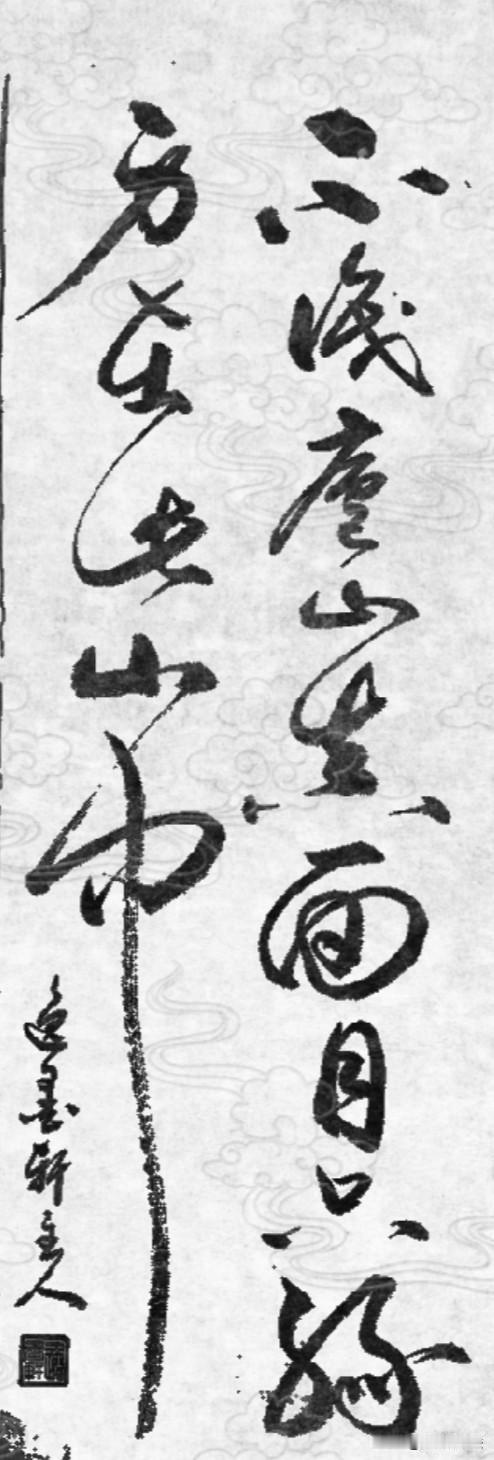 不識廬山真面目只緣
身在此山中
逸墨軒主人